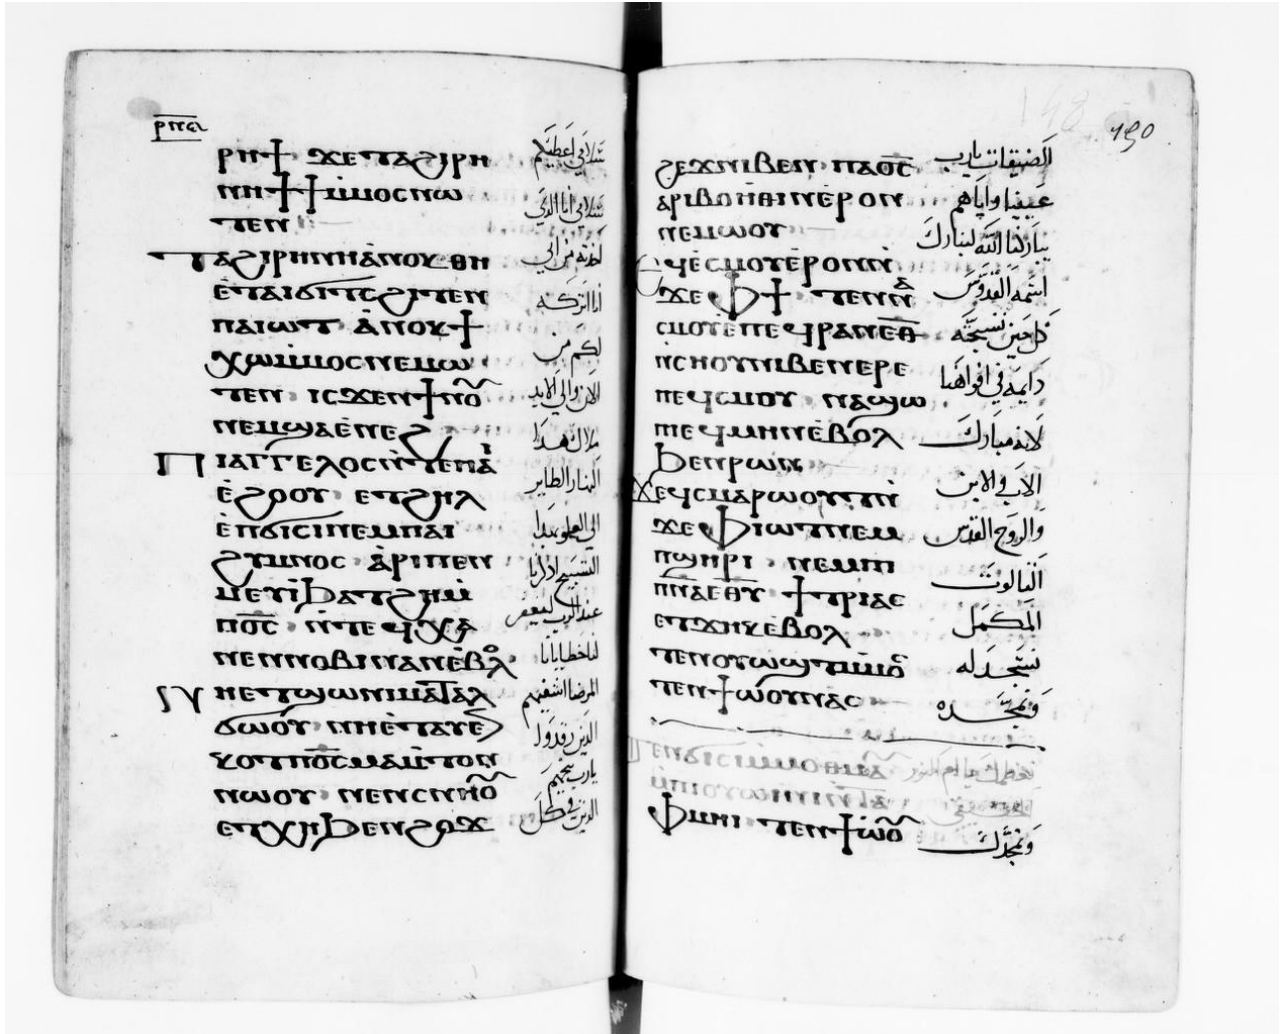 ⲣⲏϯ ϫⲉ ⲧⲁϩⲓⲣⲏ
ⲛⲏ ϯϯ ⲙ̀ⲙⲟⲥ ⲛⲱ
ⲧⲉⲛ
ⲧⲁϩⲓⲣⲏⲛⲏ ⲁ̀ⲛⲟⲕ ⲑⲏ
ⲉ̀ⲧⲁⲓϭⲓⲧⲥ ϩⲓⲧⲉⲛ
ⲡⲁⲓⲱⲧ ⲁ̀ⲛⲟⲕ ϯ
ⲭⲱ ⲙ̀ⲙⲟⲥ ⲛⲉⲙⲱ
ⲧⲉⲛ ⲓⲥϫⲉⲛ ϯⲛⲟ
ⲛⲉⲙ ϣⲁ ⲉ̀ⲛⲉϩ
ⲡⲓⲁⲅⲅⲉⲗⲟⲥ ⲛ̀ⲧⲉ ⲡⲁⲓ
ⲉ̀ϩⲟⲟⲩ ⲉⲧϩⲏⲗ
ⲉ̀ⲡϭⲓⲥⲓ ⲛⲉⲙ ⲡⲁⲓ
ϩⲩⲙⲛⲟⲥ ⲁ̀ⲣⲓⲡⲉⲛ
ⲙⲉⲩⲓ̀ ϧⲁⲧϩⲏ ⲙ̀
ⲡⲟ̅ⲥ̅ ⲛ̀ⲧⲉϥⲭⲁ
ⲛⲉⲛⲛⲟⲃⲓ ⲛⲁⲛ ⲉ̀ⲃⲟⲗ
ⲛⲏ ⲉⲧϣⲱⲛⲓ ⲙⲁⲧⲁⲗ
ϭⲱⲟⲩ ⲛⲏ ⲉ̀ⲧⲁⲩⲉⲛ
ⲕⲟⲧ ⲡⲟ̅ⲥ̅ ⲙⲁⲙ̀ⲧⲟⲛ
ⲛⲱⲟⲩ ⲛⲉⲛⲥⲛⲏⲟ
ⲉⲧⲭⲏ ϧⲉⲛ ϩⲟϫ
سلامي اعطيكم
سلامي انا الذي
اخذته من ابي
انا اتركه
لكم من
الان والي الابد
ملاك هذا
النهار الطاير
الي العلو بهذا
التسبيح اذكرنا
عند الرب ليغفر
لنا خطايانا
المرضا اشفيهم
الذين رقدوا
يارب نيحهم
الذين في كل
190
ϩⲉϫ ⲛⲓⲃⲉⲛ ⲡⲁⲟ̅ⲥ̅
ⲁⲣⲓⲃⲟⲏ̀ⲑⲓⲛ ⲉ̀ⲣⲟⲛ
ⲛⲉⲙⲱⲟⲩ
ⲉϥⲉ̀ⲥⲙⲟⲩ ⲉ̀ⲣⲟⲛ ⲛ̀
ϫⲉ ⲫϯ ⲧⲉⲛⲛⲁ
ⲥⲙⲟⲩ ⲉ̀ⲡⲉϥⲣⲁⲛ ⲉⲑ
ⲛⲥⲏⲟⲩ ⲛⲓⲃⲉⲛ ⲉⲣⲉ
ⲡⲉϥⲥⲙⲟⲩ ⲛⲁϣⲱ
ⲡⲉ ϥⲙⲏⲛ ⲉ̀ⲃⲟⲗ
ϧⲉⲛ ⲣⲱⲛ
ϫⲉ ϥⲥⲙⲁⲣⲱⲟⲩⲧ ⲛ̀
ϫⲉ ⲫⲓⲱⲧ ⲛⲉⲙ
ⲡϣⲏⲣⲓ ⲛⲉⲙ ⲡⲓ
ⲡⲛⲁ ⲉⲑⲩ ϯⲧⲣⲓⲁⲥ
ⲉⲧϫⲏⲕ ⲉⲃⲟⲗ
ⲧⲉⲛⲟⲩⲱϣⲧ ⲙ̀ⲙⲟ
ⲧⲉⲛϯⲱⲟⲩ ⲛⲁⲥ
ⲧⲉⲛϭⲓⲥⲓ ⲙ̀ⲙⲟ ⲑⲙⲁ
ⲙ̀ⲡⲓⲟⲩⲱⲓⲛⲓ ⲛ̀ⲧⲁ
ⲫⲙⲏⲓ ⲧⲉⲛϯⲱⲟ
الضيقات يارب
عيننا واياهم
يباركنا الله لنبارك
اسمه القدوس
كل حين تسبحته
دايمة في افواهنا
لانه مبارك
الاب والابن
والروح القدس
الثالوث
المكمل
نسجد له
ونمجده
نعظمك يا ام النور
الحقيقي
ونمجدك